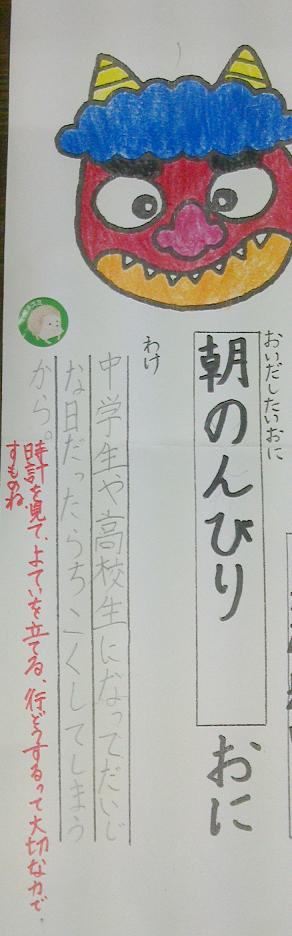 おいだしたいおに
朝のんびり
おに
わけ
中学生や高校生になってだいじ
な日だったらちこくしてしまう
から。
時計を見て、よていを立てる、行どうするって大切な力で
すものね。